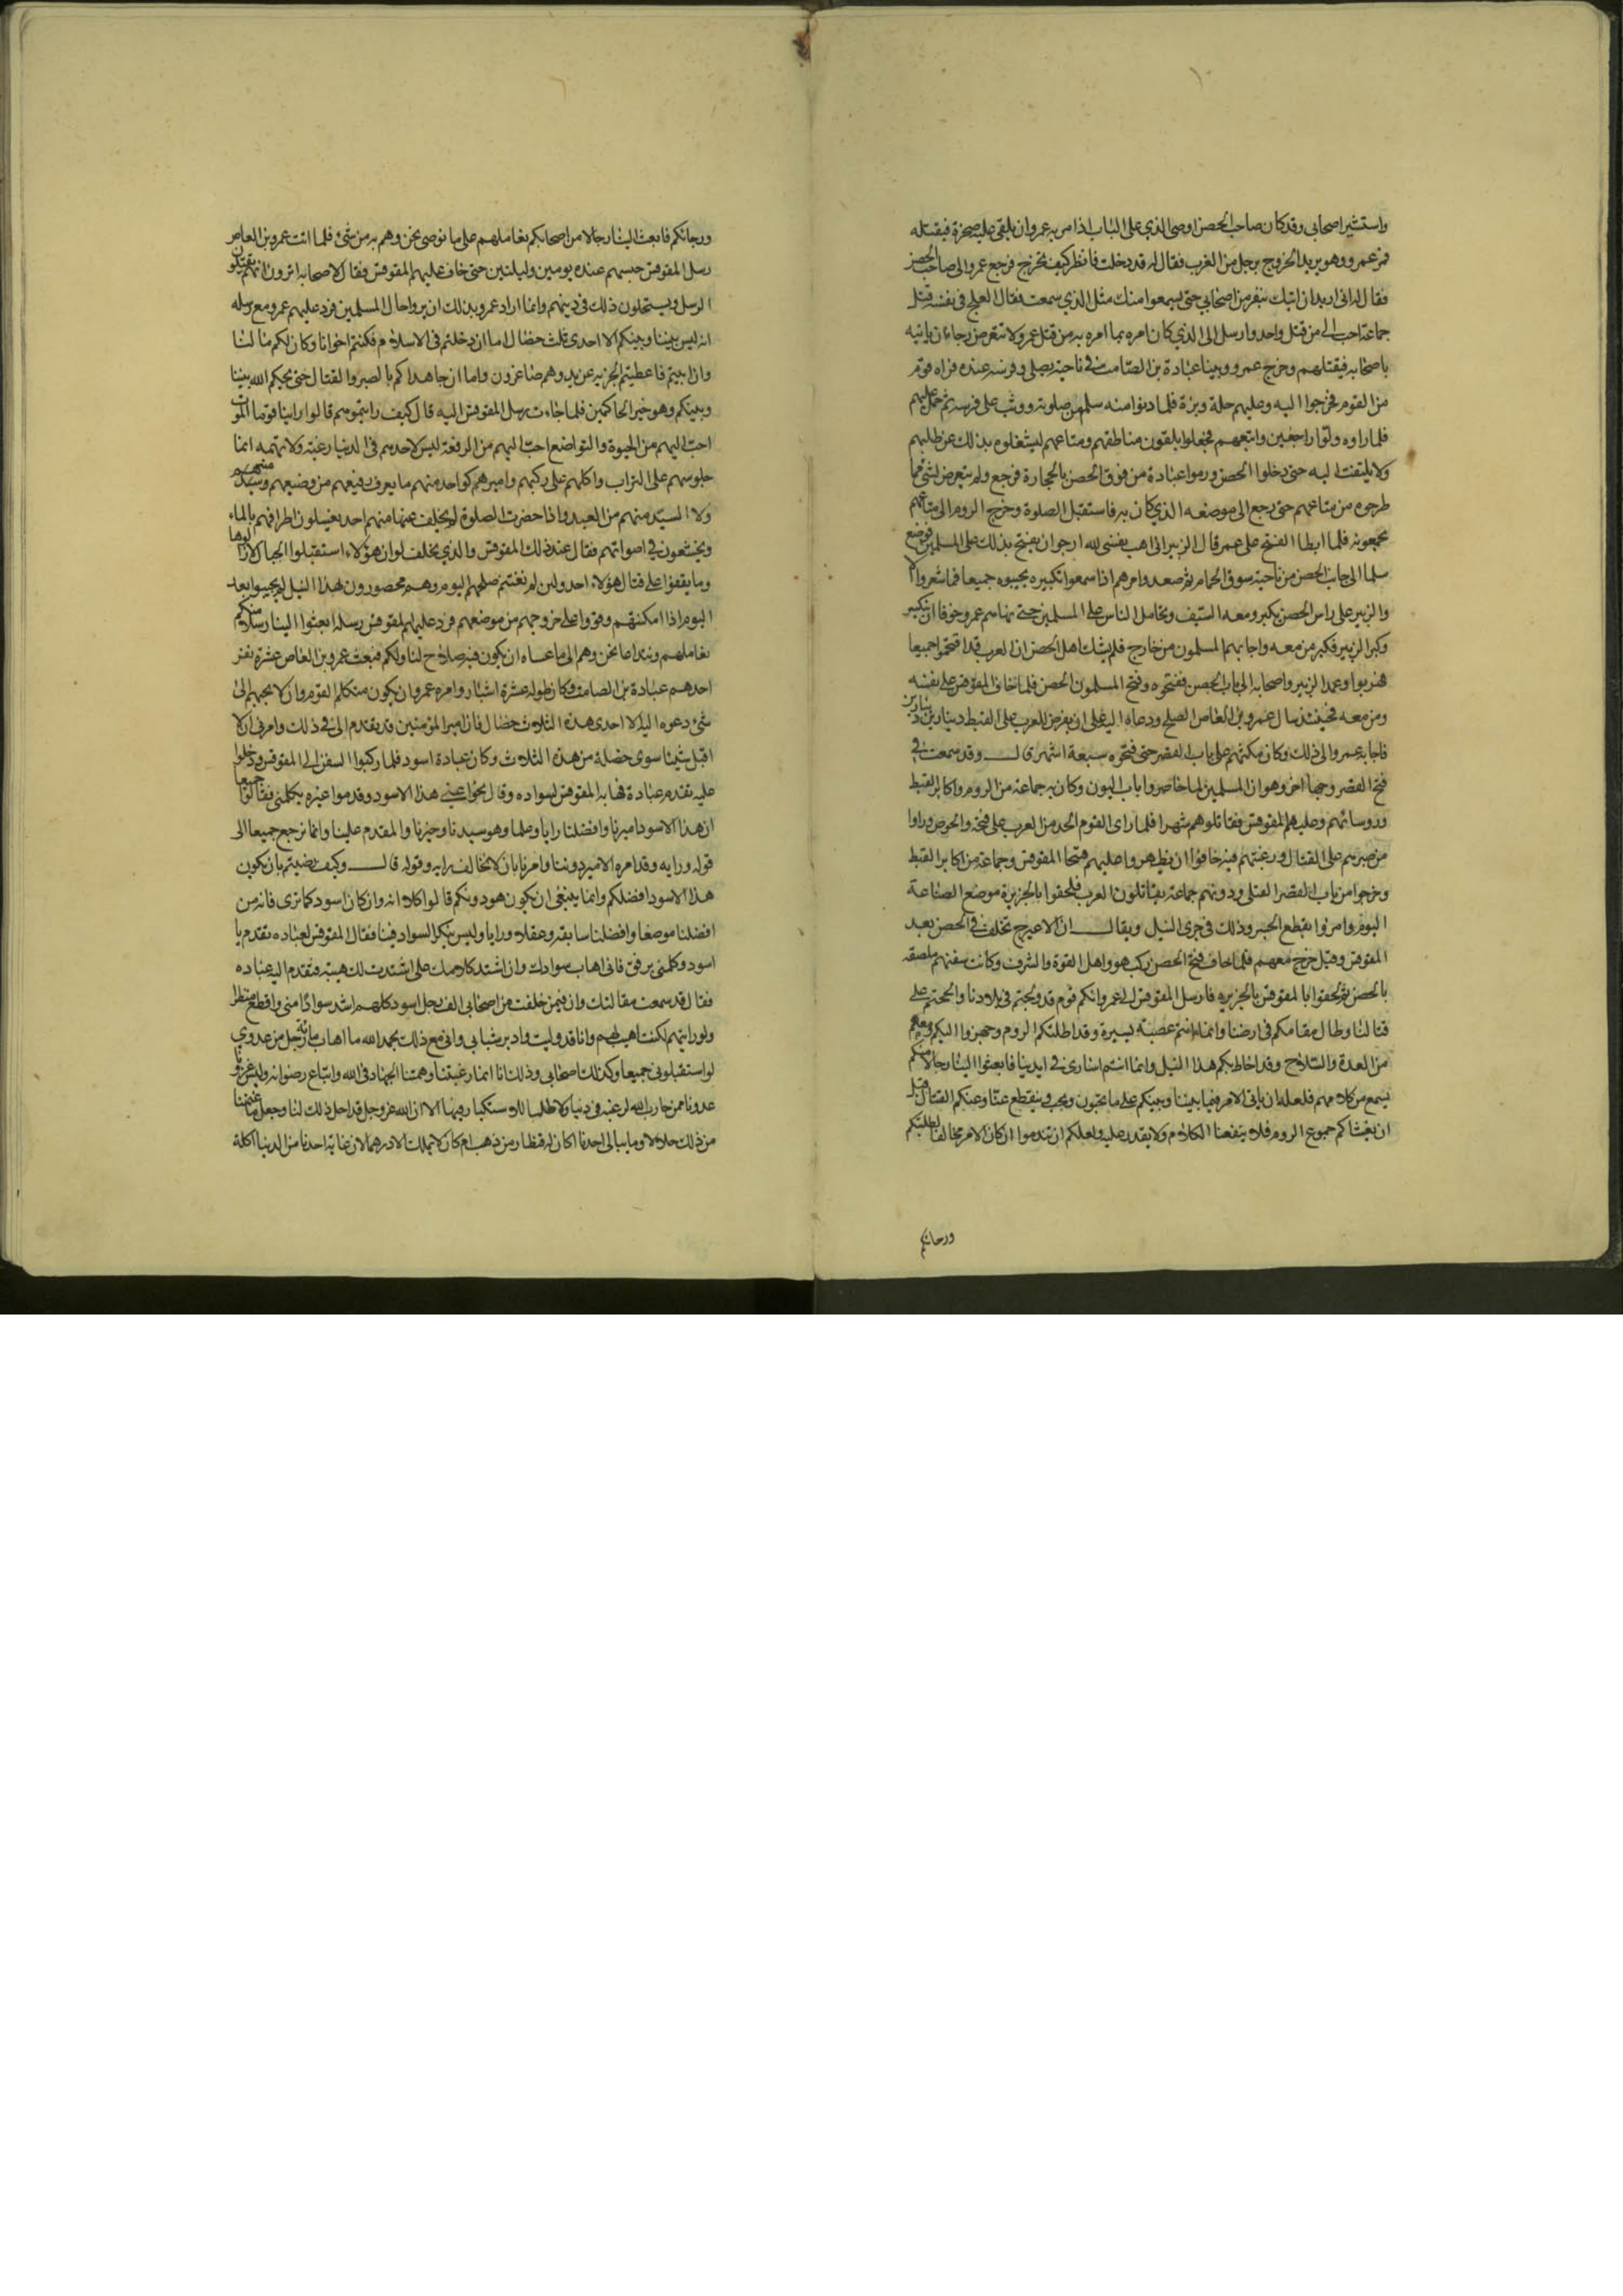 واستشير اصحابى وقد كان صاحب الحصن اوصى الذي على الباب اذا مر به عمرو ان يلقى عليه صخرة فيقتله
فمر عمرو وهو يريد الخروج برجل من العرب فقال له قد دخلت فانظر كيف تخرج فرجع عمرو الى صاحب الحصن
فقال له انى اريد ان اتيك بنفر من اصحابي حتى يسمعوا منك مثل الذي سمعت فقال العلج فى نفسه قتل
جماعة احب الى من قتل واحد وارسل الى الذي كان امره بما امره به من قتل عمرو لا تتعرض رجاء ان ياتيه
باصحابه فيقتلهم وخرج عمرو وبينا عبادة بن الصامت في ناحية يصلى وفرسه عنده فراه قوم
من القوم فخرجوا اليه وعليهم حلة وبزة فلما دنوا منه سلم من صلوته ووثب على فرسه ثم حمل عليهم
فلما راوه ولوا راجعين واتبعهم فجعلوا يلقون مناطقهم ومتاعهم ليشغلوه بذلك عن طلبهم
ولا يلتفت اليه حتى دخلوا الحصن ورموا عبادة من فوق الحصن بالحجارة فرجع ولم يتعرض لشئ مما
طرحوه من متاعهم حتى رجع الى موضعه الذي كان به فاستقبل الصلوة وخرج الروم الى متاعهم
يجمعونه فلما ابطا الفتح على عمرو قال الزبير انى اهب نفسى لله ارجوا ان يفتح بذلك على المسلمين فوضع
سلما الى جانب الحصن من ناحية سوق الحمام ثم صعد وامرهم اذا سمعوا تكبيره يجيبوه جميعا فما شعروا الا
والزبير على راس الحصن يكبر ومعه السيف وتحامل الناس على المسلمين حتى نهاهم عمرو خوفا ان ينكسر
وكبر الزبير فكبر من معه واجابهم المسلمون من خارج فلم يشك اهل الحصن ان العرب قد اقتحموا جميعا
فهربوا وعمد الزبير واصحابه الى باب الحصن ففتحوه وفتح المسلمون الحصن فلما خاف المقوقس على نفسه
ومن معه فحينئذ سال عمرو بن العاص الصلح ودعاه اليه على ان يفرض للعرب على القبط دينارين دينارين
فاجابه عمرو الى ذلك وكان مكثهم على باب القصر حتى فتحوه سبعة اشهر قال وقد سمعت في
فتح القصر وجها اخر وهو ان المسلمين لما حاصروا باب اليون وكان به جماعة من الروم واكابر القبط
وروسائهم وعليهم المقوقس فقاتلوهم شهرا فلما راى القوم الجد من العرب على فتحه والحرص وراوا
من صبرهم على القتال ورغبتهم فيه خافوا ان يظهروا عليهم فتنحا المقوقس وجماعة من اكابر القبط
وخرجوا من باب القصر القبلى ودونهم جماعة يقاتلون العرب فلحقوا بالجزيرة موضع الصناعة
اليوم وامروا بقطع الجسر وذلك في جرى النيل ويقال ان الاعيرج تخلف في الحصن بعد
المقوقس وقيل خرج معهم فلما خاف فتح الحصن ركب هو واهل القوة والشرف وكانت سفنهم ملصقة
بالحصن ثم لحقوا بالمقوقس بالجزيره فارسل المقوقس الى عمرو انكم قوم قد ولجتم فى بلادنا والححتم على
قتالنا وطال مقامكم فى ارضنا وانما انتم عصبة يسيرة وقد اظلتكم الروم وجهزوا اليكم ومعهم
من العدة والسلاح وقد احاط بكم هذا النيل وانما انتم اسارى في ايدينا فابعثوا الينا رجالا منكم
نسمع من كلامهم فلعله ان ياتى الامر فيما بيننا وبينكم على ما تحبون ونحب وينقطع عنا وعنكم القتال قبل
ان يغشاكم جموع الروم فلا ينفعنا الكلام ولا يقدر عليه ولعلكم ان تندموا ان كان الامر مخالفا لطلبتكم
ورجائكم
ورجائكم فابعث الينا رجالا من اصحابكم نعاملهم على ما نرضى نحن وهم به من شئ فلما اتت عمرو بن العاص
رسل المقوقس حبسهم عنده يومين وليلتين حتى خاف عليهم المقوقس فقال لاصحابه اترون انهم يقتلون
الرسل ويستحلون ذلك فى دينهم وانما اراد عمرو بذلك ان يروا حال المسلمين فرد عليهم عمرو مع رسله
انه ليس بيننا وبينكم الا احدى ثلث خصال اما ان دخلتم فى الاسلام فكنتم اخوانا وكان لكم ما لنا
وان ابيتم فاعطيتم الجزيه عن يد وهم صاغرون واما ان جاهداكم بالصبر والقتال حتى يحكم الله بيننا
وبينكم وهو خير الحاكمين فلما جاءت رسل المقوقس اليه قال كيف رايتموهم قالوا راينا قوما الموت
احب اليهم من الحيوة والتواضع احب اليهم من الرفعة ليس لاحدهم فى الدنيا رغبة ولا نهمه انما
جلوسهم على التراب واكلهم على ركبهم واميرهم كواحد منهم ما يعرف رفيعهم من وضيعهم وسيدهم
ولا السيد منهم من العبد واذا حضرت الصلوة لم يتخلف عنها منهم احد يغسلون اطرافهم بالماء
ويخشعون في اصواتهم فقال عند ذلك المقوقس والذي يحلف لو ان هؤلاء استقبلوا الجبال لازالوها
وما يقفوا على قتال هؤلاء احد ولين لم نغتنم صلحهم اليوم وهم محصورون بهذا النيل لم يجيبوا بعد
اليوم اذا امكنتهم وقووا على خروجهم من موضعهم فرد عليهم المقوقس رسله ابعثوا الينا رسلا منكم
نعاملهم ونتداعا نحن وهم الى ما عساه ان يكون فيه صلاح لنا ولكم فبعث عمرو بن العاص عشرة نفر
احدهم عبادة بن الصامت وكان طوله عشرة اشبار وامره عمرو ان يكون متكلم القوم وان لا يجبهم الى
شئ دعوه اليه الا احدى هذه الثلاث خصال فان امير المؤمنين قد تقدم الى في ذلك وامرنى ان لا
اقبل شيئا سوى خصلة من هذه الثلاث وكان عبادة اسود فلما ركبوا السفن الى المقوقس ودخلوا
عليه تقدم عبادة فهابه المقوقس لسواده وقال نحوا عنى هذا الاسود وقدموا غيره يكلمنى فقالوا جميعا
ان هذا الاسود اميرنا وافضلنا رايا وعلما وهو سيدنا وخيرنا والمقدم علينا وانما نرجع جميعا الى
قوله ورايه وقد امره الامير دوننا وامرنا بان لا نخالف رايه وقوله قال وكيف رضيتم بان يكون
هذا الاسود افضلكم وانما ينبغى ان يكون هو دونكم قالوا كلا انه وان كان اسود كما ترى فانه من
افضلنا موضعا وافضلنا سابقه وعقلا ورايا وليس ينكر السواد فينا فقال المقوقس لعباده تقدم يا
اسود وكلمنى برفق فانى اهاب سوادك وان اشتد كلامك على اشتدت لك هيبة فتقدم اليه عباده
فقال قد سمعت مقالتك وان فيمن خلفت من اصحابى الف رجل اسود كلهم اشد سوادا منى وافظع منظرا
ولو رايتهم لكنت اهيب لهم وانا قد وليت وادبر شبابى وانى مع ذلك بحمد الله ما اهاب مائة رجل من عدوي
لو استقبلونى جميعا وكذلك اصحابى وذلك انا انما رغبتنا وهمتنا الجهاد فى الله واتباع رضوانه وليس غزونا
عدونا ممن حارب الله لرغبة فى دنيا ولا طلبا للاستكبار فيها الا ان الله عز وجل قد احل ذلك لنا وجعل ما غنمنا
من ذلك حلالا وما يبالى احدنا اكان له قنطار من ذهب ام كان لا يملك الا درهما لان غاية احدنا من الدنيا اكلة